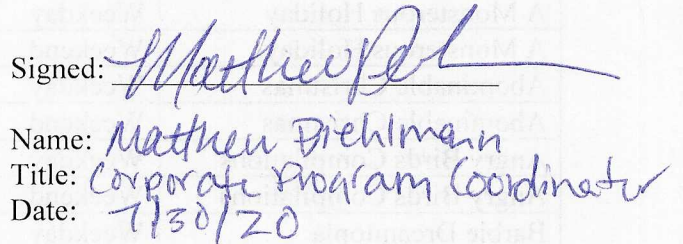 Signed: Matthew
Name: Matthew Diehlmann
Title: Corporate Program Coordinator
Date: 7/30/20